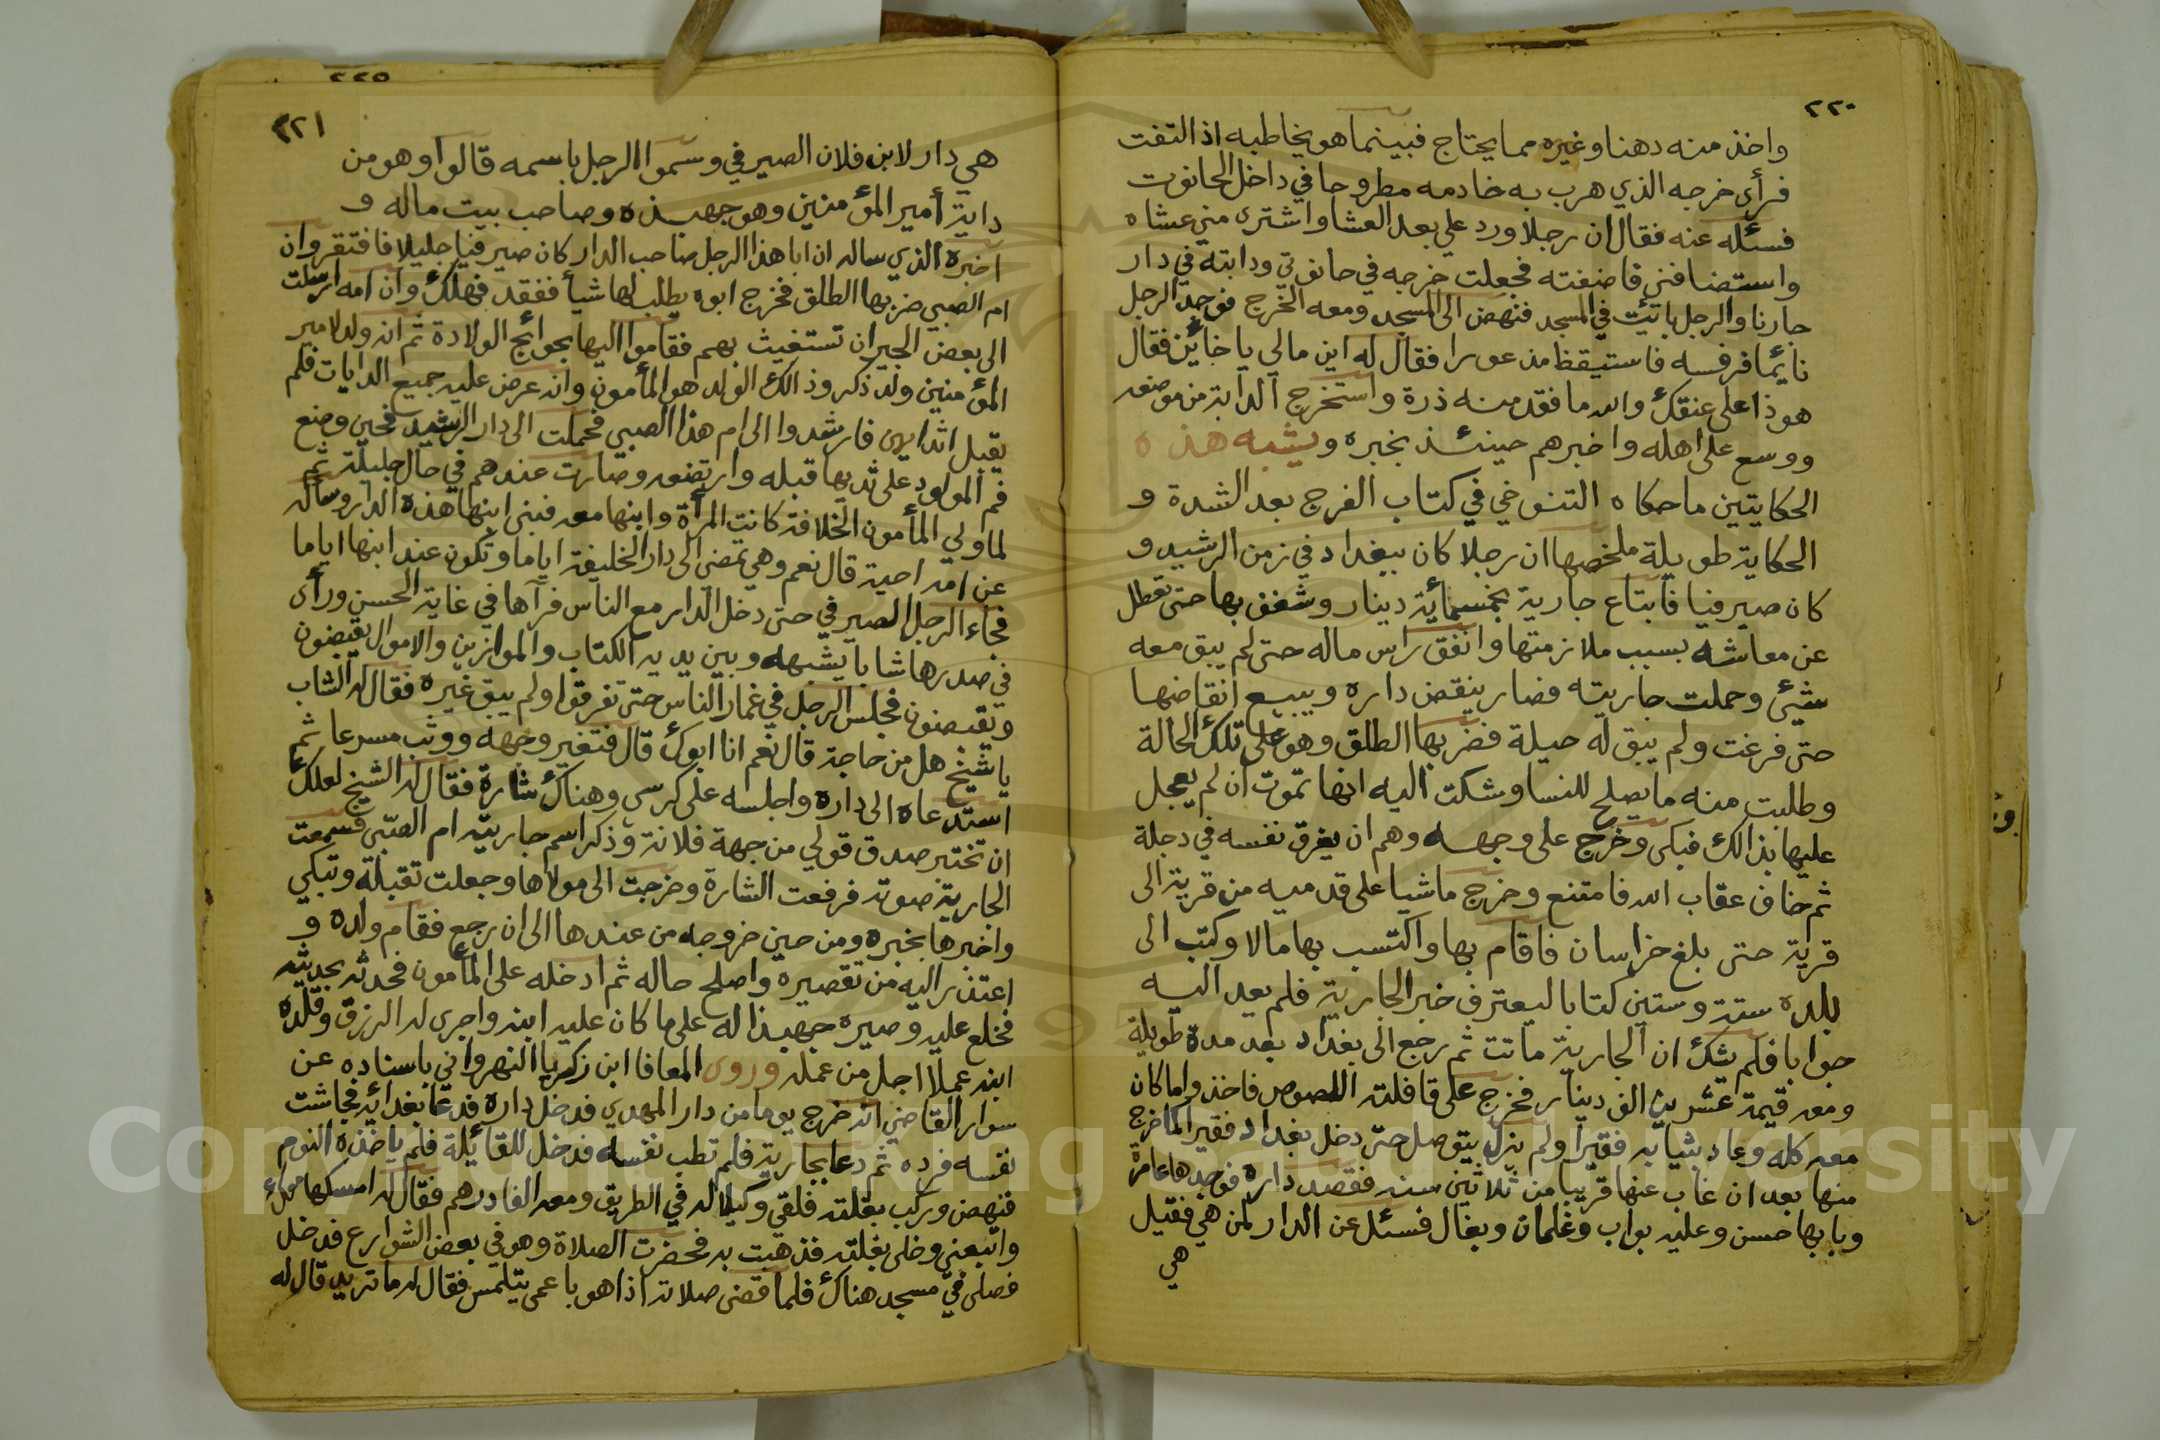 ٢٢٠
واخذ منه دهنا وغيره مما يحتاج فبينما هو يخاطبه اذ التفت
فرأى خرجه الذي هرب به خادمه مطروحا في داخل الحانوت
فسئله عنه فقال ان رجلا ورد علي بعد العشا واشترى مني عشاه
واستضافني فاضفته فجعلت خرجه في حانوتي ودابته في دار
جارنا والرجل بائت في المسجد فنهض الى المسجد ومعه الخرج فوجد الرجل
نائما فرفسه فاستيقظ مذعورا فقال له اين مالي يا خائن فقال
هوذا على عنقك والله ما فقد منه ذرة واستخرج الدابة من موضعه
ووسع على اهله واخبرهم حينئذ بخبره ويشبه هذه
الحكايتين ما حكاه التنوخي في كتاب الفرج بعد الشدة و
الحكاية طويلة ملخصها ان رجلا كان ببغداد في زمن الرشيد و
كان صيرفيا فابتاع جارية بخمسمائة دينار وشغف بها حتى تعطل
عن معاشه بسبب ملازمتها وانفق راس ماله حتى لم يبق معه
شيئ وحملت جاريته فصار ينقض داره ويبيع انقاضها
حتى فرغت ولم يبق له حيلة فضربها الطلق وهو على تلك الحالة
وطلبت منه ما يصلح للنسا وشكت اليه انها تموت ان لم يعجل
عليها بذالك فبكى وخرج على وجهه وهم ان يغرق نفسه في دجلة
ثم خاف عقاب الله فامتنع وخرج ماشيا على قدميه من قرية الى
قرية حتى بلغ خراسان فاقام بها واكتسب بها مالا وكتب الى
بلده ستة وستين كتابا ليعترف خبر الجارية فلم يعد اليه
جوابا فلم يشك ان الجارية ماتت ثم رجع الى بغداد بعد مدة طويلة
ومعه قيمة عشرين الف دينار فخرج على قافلته اللصوص فاخذوا ما كان
معه كله وعاد بثيابه فقيرا ولم يزل يتوصل حتى دخل بغداد فقيرا كما خرج
منها بعد ان غاب عنها قريبا من ثلاثين سنه فقصد داره فوجدها عامرة
وبابها حسن وعليه بواب وغلمان وبغال فسئل عن الدار لمن هي فقيل
هي
٢٢٥
٢٢١
هي دار لابن فلان الصيرفي وسموا الرجل باسمه قالوا وهو من
داية أمير المؤمنين وهو جهبذه وصاحب بيت ماله و
اخبره الذي ساله ان ابا هذا الرجل صاحب الدار كان صيرفيا جليلا فافتقر وان
ام الصبي ضربها الطلق فخرج ابوه يطلب لها شيأ ففقد فهلك وان امه ارسلت
الى بعض الجيران تستغيث بهم فقاموا اليها بحوائج الولادة ثم انه ولد لامير
المؤمنين ولد ذكر وذالك الولد هو المأمون وانه عرض عليه جميع الدايات فلم
يقبل اثدايهن فارشدوا الى ام هذا الصبي فحملت الى دار الرشيد فحين وضع
فم المولود على ثديها قبله وارتضعه وصارت عندهم في حال جليلة ثم
لما ولي المأمون الخلافة كانت المرأة وابنها معه فبنى ابنها هذه الدار وساله
عن امه احية قال نعم وهي تمضي الى دار الخليفة اياما وتكون عند ابنها اياما
فجاء الرجل الصيرفي حتى دخل الدار مع الناس فرآها في غاية الحسن ورأى
في صدرها شابا يشبهه وبين يديه الكتاب والموازين والاموال يقبضون
ويقبضون فجلس الرجل في غمار الناس حتى تفرقوا ولم يبق غيره فقال له الشاب
يا شيخ هل من حاجة قال نعم انا ابوك قال فتغير وجهه ووثب مسرعا ثم
استدعاه الى داره واجلسه على كرسي وهناك شارة فقال له الشيخ لعلك
ان تختبر صدق قولي من جهة فلانة وذكر اسم جاريته ام الصبي فسمعت
الجارية صوته فرفعت الشارة وخرجت الى مولاها وجعلت تقبله وتبكي
واخبرها بخبره ومن حين خروجه من عندها الى ان رجع فقام ولده و
اعتذر اليه من تقصيره واصلح حاله ثم ادخله على المأمون فحدثه بحديثه
فخلع عليه وصيره جهبذا له على ما كان عليه ابنه واجرى له الرزق وقلده
ابنه عملا اجل من عمله وروى المعافا ابن زكريا النهرواني باسناده عن
سوار القاضي انه خرج يوما من دار المهدي فدخل داره فدعا بغدائه فجاشت
نفسه فرده ثم دعا بجارية فلم تطب نفسه فدخل للقائلة فلم ياخذه النوم
فنهض وركب بغلته فلقي وكيلا له في الطريق ومعه الفا درهم فقال له امسكها معك
واتبعني وخلى بغلته فذهبت به فحضرت الصلاة وهو في بعض الشوارع فدخل
فصلى في مسجد هناك فلما قضى صلاته اذا هو باعمى يتلمس فقال له ما تريد قال له